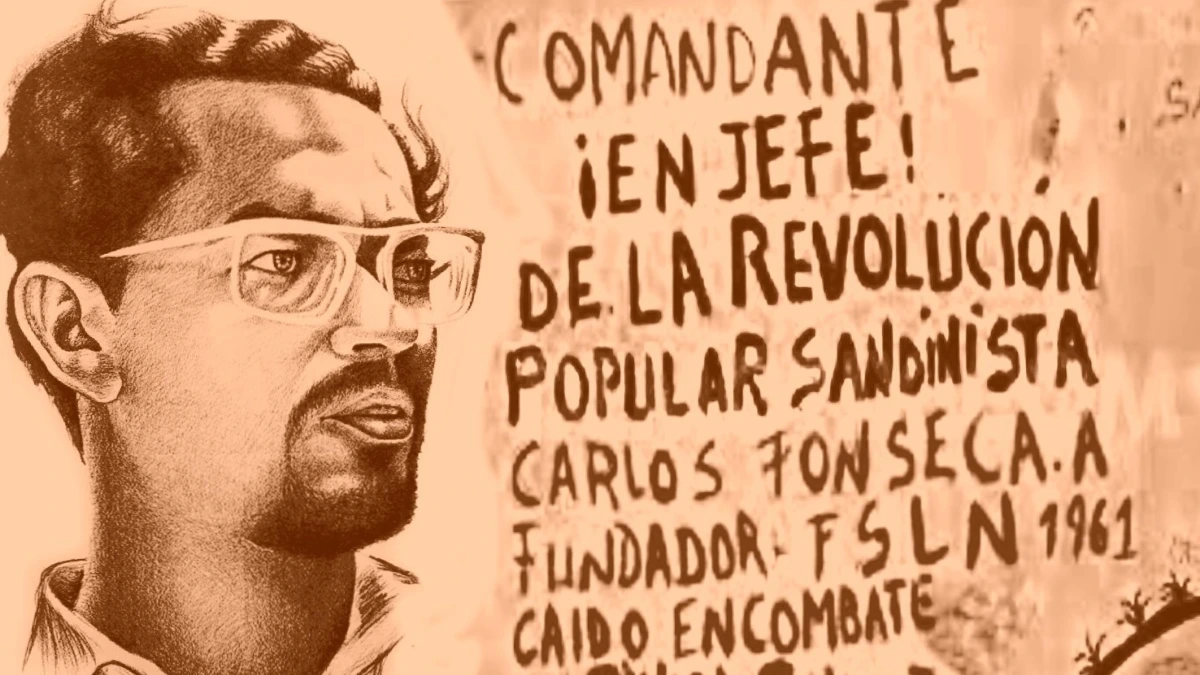 COMANDANTE
¡EN JEFE!
DE LA REVOLUCIÓN
POPULAR SANDINISTA
CARLOS FONSECA.A
FUNDADOR. FSLN 1961
CAIDO EN COMBATE